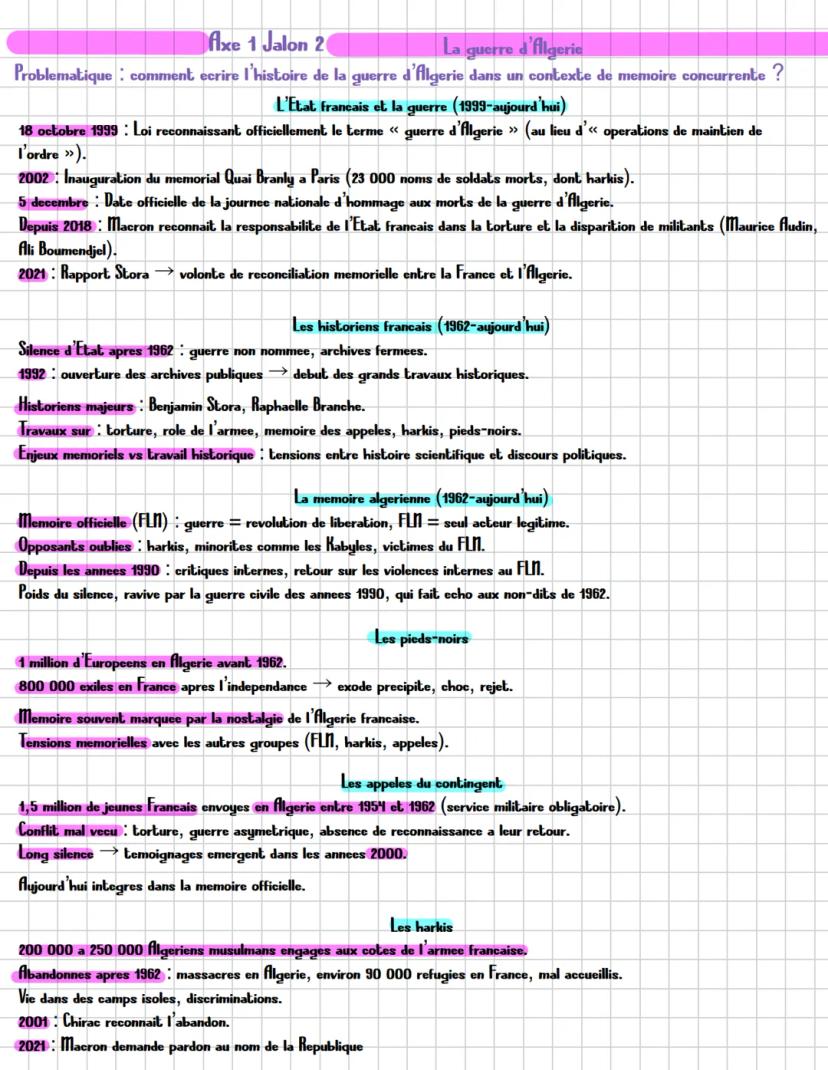 Axe 1 Jalon 2 La guerre d'Algerie
Problematique : comment ecrire l'histoire de la guerre d'Algerie dans un contexte de memoire concurrente ?
L'Etat francais et la guerre (1999-aujourd'hui)
18 octobre 1999 : Loi reconnaissant officiellement le terme « guerre d'Algerie » (au lieu d'« operations de maintien de
l'ordre »).
2002 : Inauguration du memorial Quai Branly a Paris (23 000 noms de soldats morts, dont harkis).
5 decembre : Date officielle de la journee nationale d'hommage aux morts de la guerre d'Algerie.
Depuis 2018 : Macron reconnait la responsabilite de l'Etat francais dans la torture et la disparition de militants (Maurice Audin,
Ali Boumendjel).
2021 : Rapport Stora → volonte de reconciliation memorielle entre la France et l'Algerie.
Les historiens francais (1962-aujourd'hui)
Silence d'Etat apres 1962 : guerre non nommee, archives fermees.
1992 : ouverture des archives publiques → debut des grands travaux historiques.
Historiens majeurs : Benjamin Stora, Raphaelle Branche.
Travaux sur : torture, role de l'armee, memoire des appeles, harkis, pieds-noirs.
Enjeux memoriels vs travail historique : tensions entre histoire scientifique et discours politiques.
La memoire algerienne (1962-aujourd'hui)
Memoire officielle (FLN) : guerre = revolution de liberation, FLN = seul acteur legitime.
Opposants oublies : harkis, minorites comme les Kabyles, victimes du FLN.
Depuis les annees 1990 : critiques internes, retour sur les violences internes au FLN.
Poids du silence, ravive par la guerre civile des annees 1990, qui fait echo aux non-dits de 1962.
Les pieds-noirs
1 million d'Europeens en Algerie avant 1962.
800 000 exiles en France apres l'independance → exode precipite, choc, rejet.
Memoire souvent marquee par la nostalgie de l'Algerie francaise.
Tensions memorielles avec les autres groupes (FLN, harkis, appeles).
Les appeles du contingent
1,5 million de jeunes Francais envoyes en Algerie entre 1954 et 1962 (service militaire obligatoire).
Conflit mal vecu : torture, guerre asymetrique, absence de reconnaissance a leur retour.
Long silence → temoignages emergent dans les annees 2000.
Aujourd'hui integres dans la memoire officielle.
Les harkis
200 000 a 250 000 Algeriens musulmans engages aux cotes de l'armee francaise.
Abandonnes apres 1962 : massacres en Algerie, environ 90 000 refugies en France, mal accueillis.
Vie dans des camps isoles, discriminations.
2001 : Chirac reconnait l'abandon.
2021 : Macron demande pardon au nom de la Republique